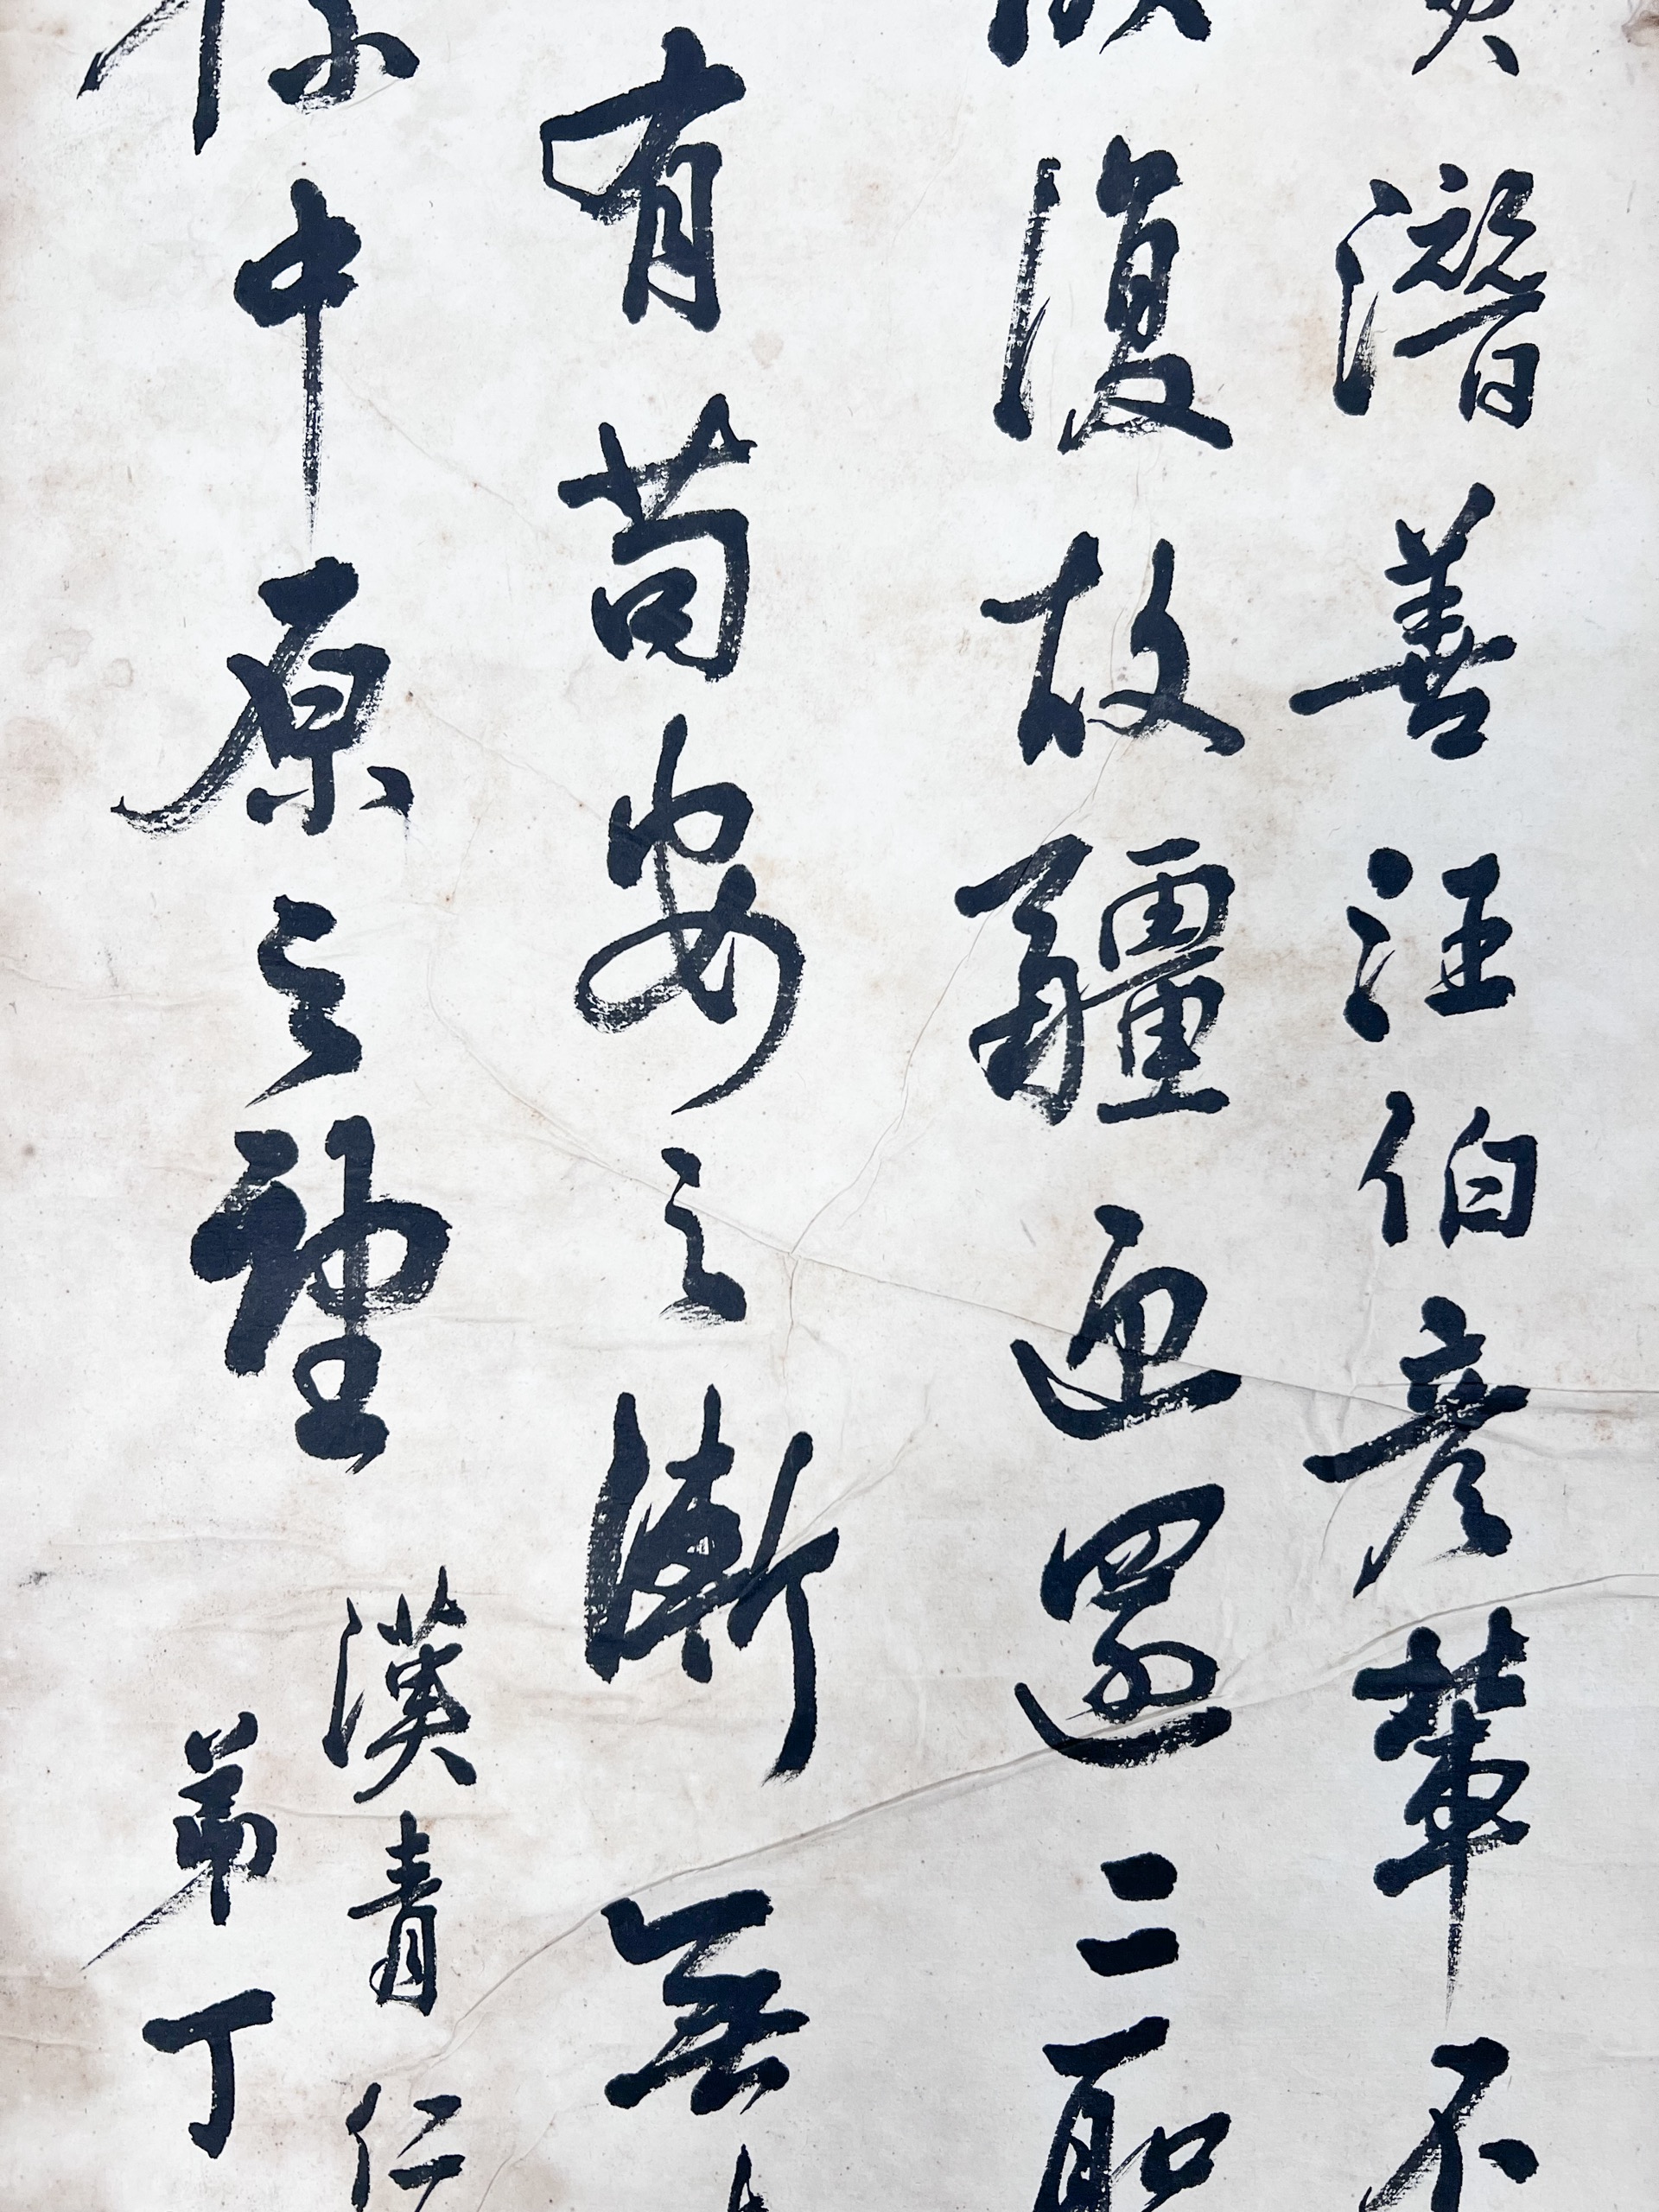 潛善汪伯彥輩不
復故疆迎還二聖
有苟安之漸無
係中原之望
漢青仁
弟丁